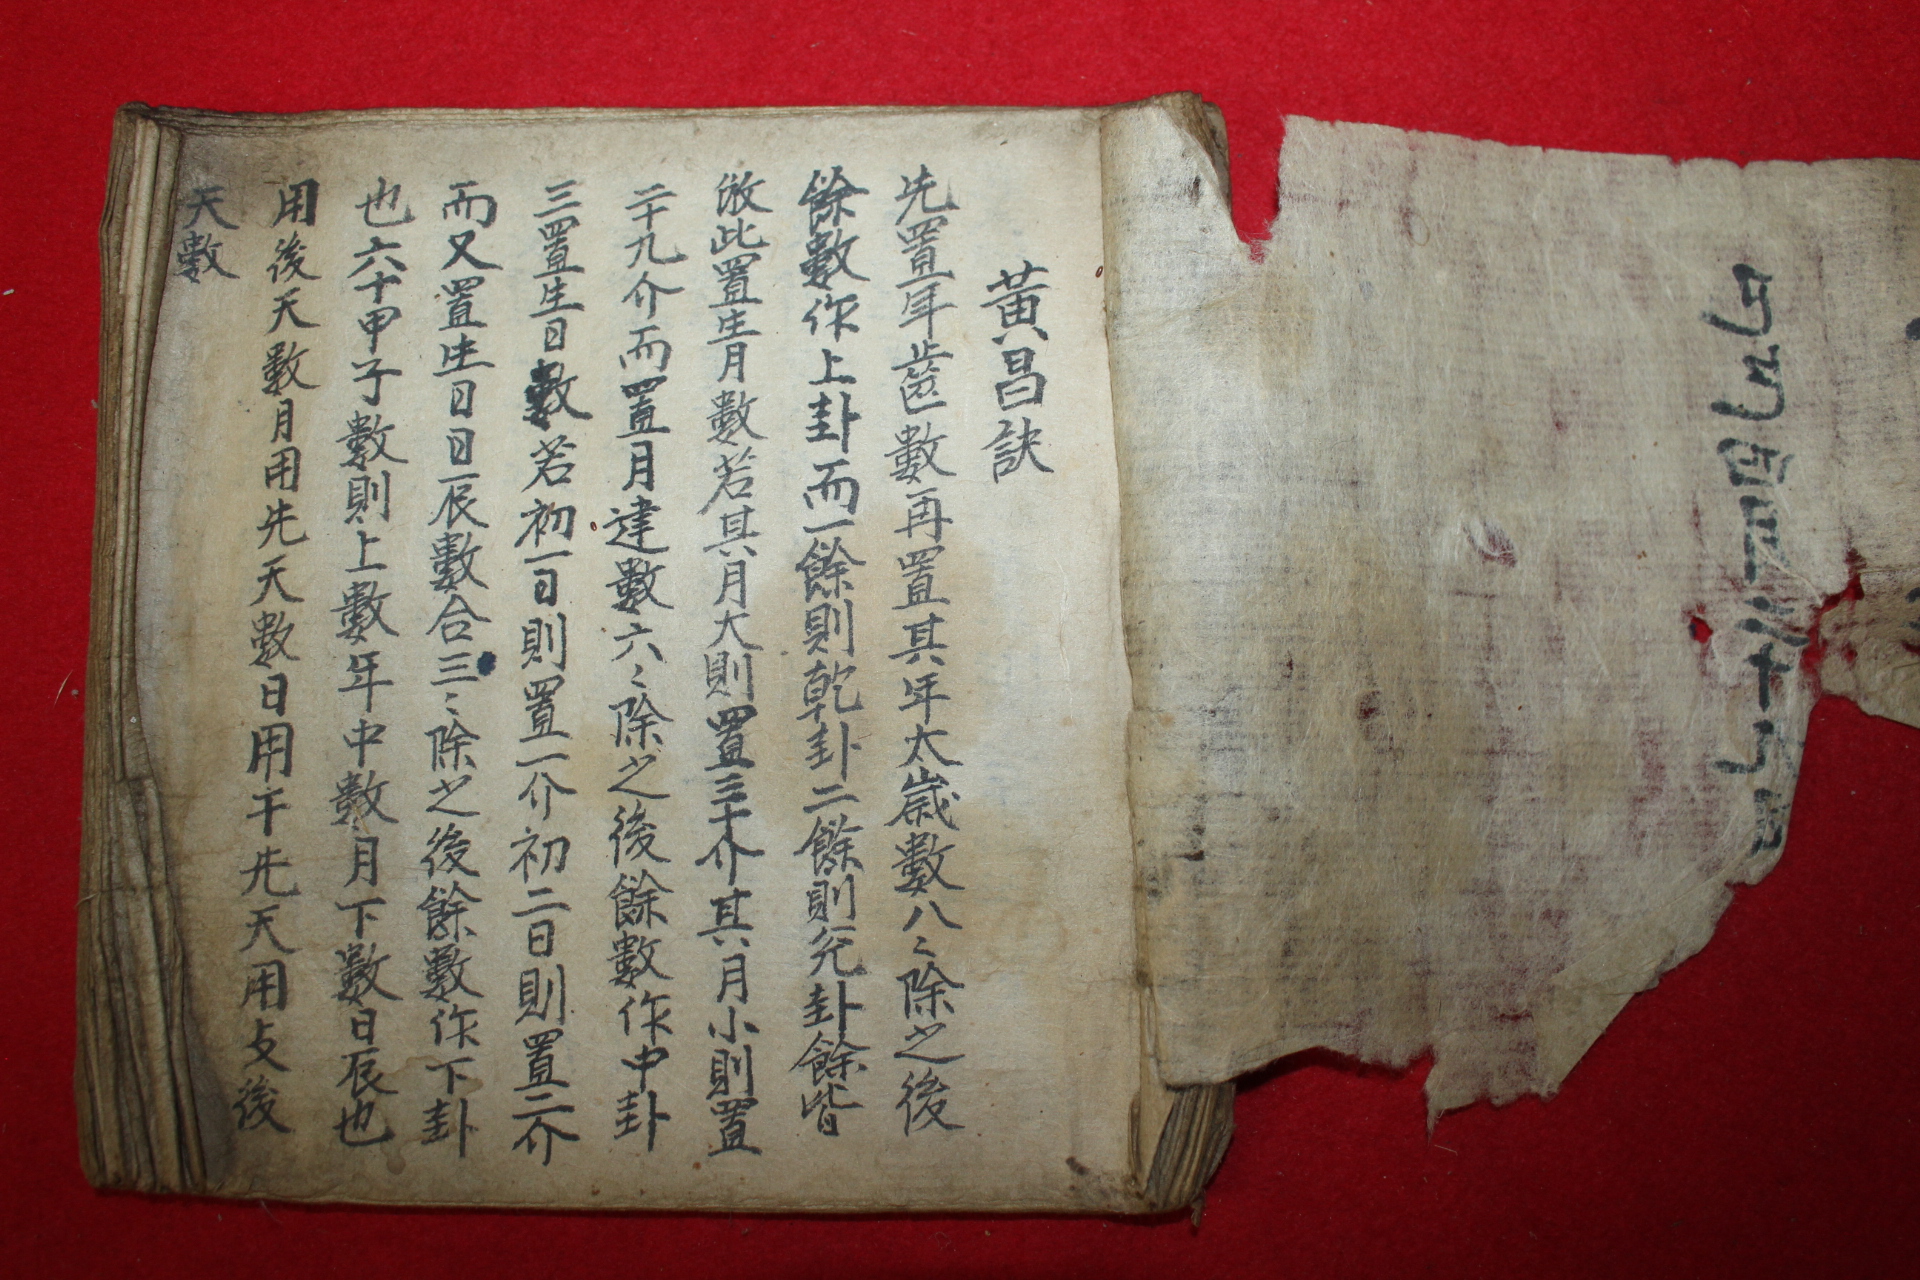 黃昌訣
先置年齒數再置其年太歲數八〻除之後
餘數作上卦而一餘則乾卦二餘則兌卦餘皆
倣此置生月數若其月大則置三十介其月小則置
二十九介而置月建數六〻除之後餘數作中卦
三置生日數若初一日則置一介初二日則置二介
而又置生日日辰數合三〻除之後餘數作下卦
也六十甲子數則上數年中數月下數日辰也
用後天數月用先天數日用干先天用支後
天數